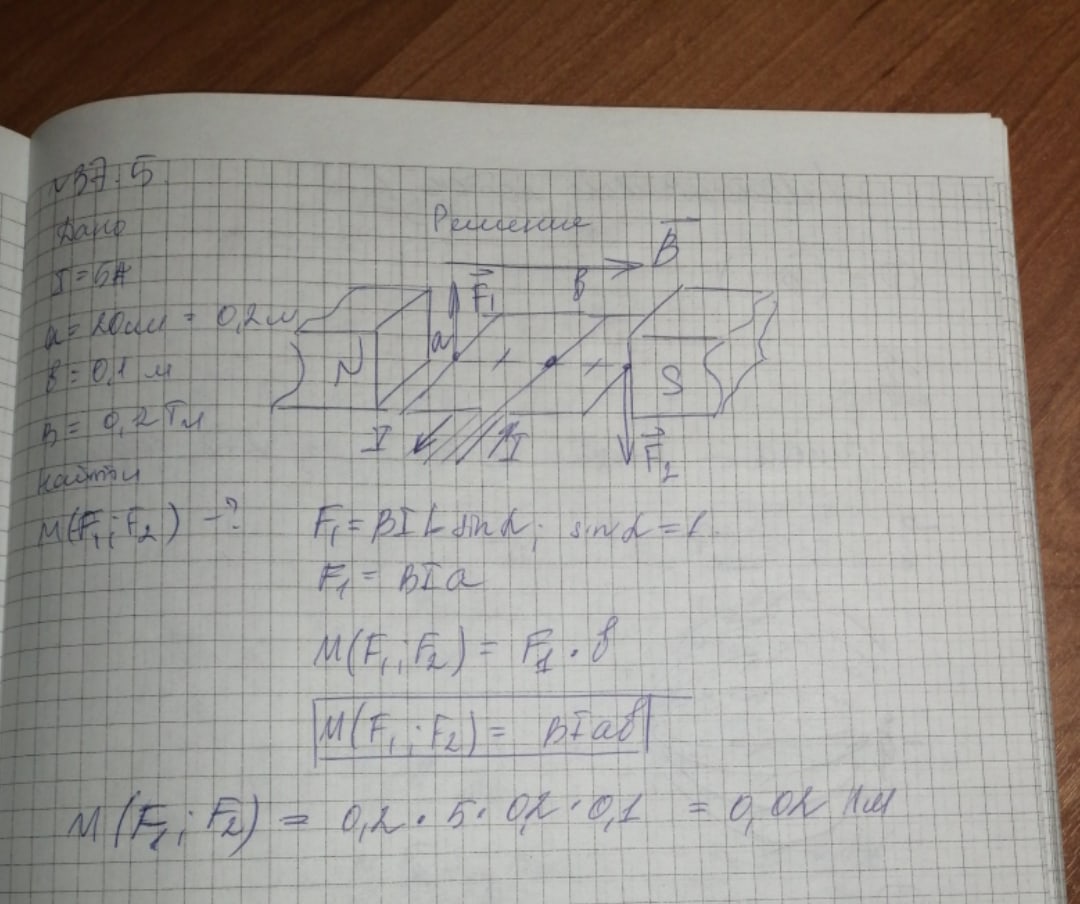 №37.5
Дано
Решение
I = 5А
a = 20см = 0,2м
в = 0,1 м
B = 0,2 Тл
Найти
M(F₁; F₂) - ?
B
F₁
в
a
N
S
I
I
F₂
F₁ = BIL sinα; sinα = 1.
F₁ = BIa
M(F₁; F₂) = F₁ · в
M(F₁; F₂) = BIaв
M(F₁; F₂) = 0,2 · 5 · 0,2 · 0,1 = 0,02 Нм